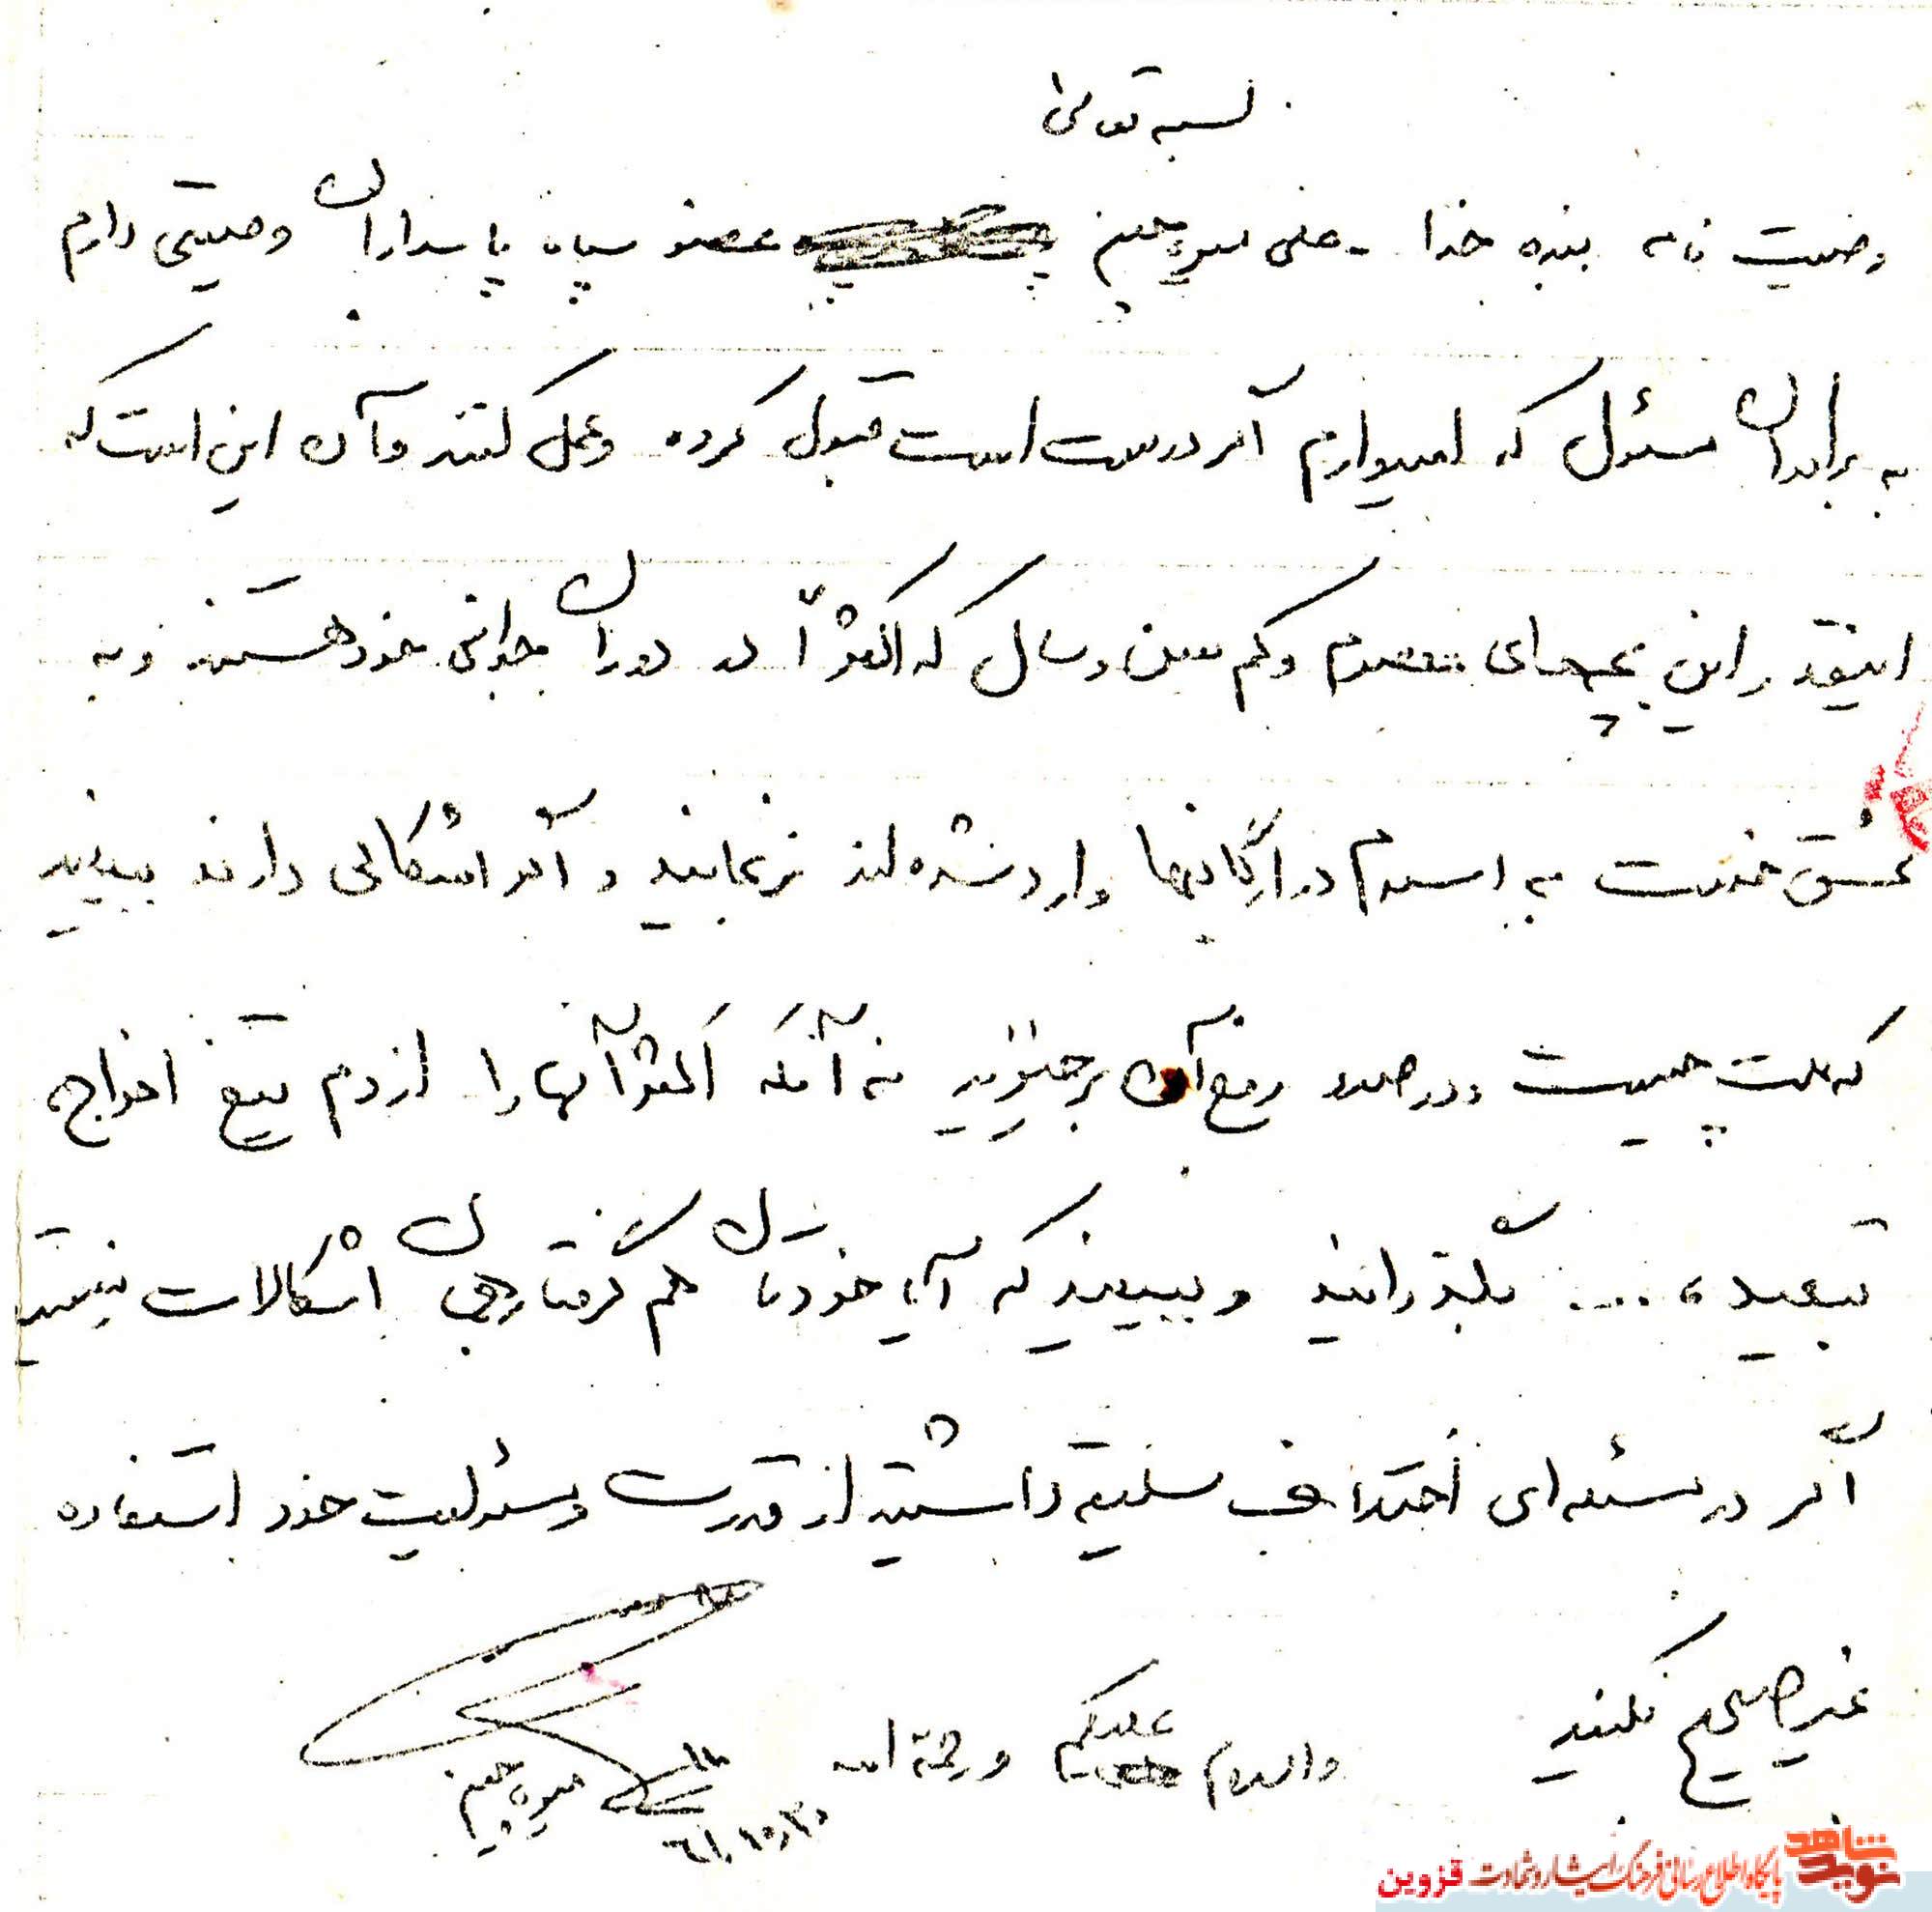 بسمه تعالی
وصیت نامه بنده خدا علی میوه چین عضو سپاه پاسداران وصیتی دارم
به برادران مسئول که امیدوارم اگر درست است قبول کرده و عمل کنند و آن این است که
اینقدر این بچه‌های معصوم و کم سن و سال که اکثراً در دوران جوانی خود هستند و به
عشق خدمت به اسلام در ارگانها وارد شده‌اند نرنجانید و اگر اشکالی دارند ببینید
که علت چیست و در صدد رفع آن برخیزید نه آنکه اکثر آنها را از دم تیغ اخراج،
تبعید، .... بگذرانید و ببینید که آیا خودتان هم گرفتار همان اشکالات نیستید
اگر در مسئله‌ای اختلاف سلیقه داشتید از قدرت و مسئولیت خود استفاده
غیر صحیح نکنید
والسلام علیکم و رحمة الله
علی میوه چین
۶۱،۱۰،۲۰
نوید شاهد
پایگاه اطلاع رسانی فرهنگ ایثار و شهادت قزوین